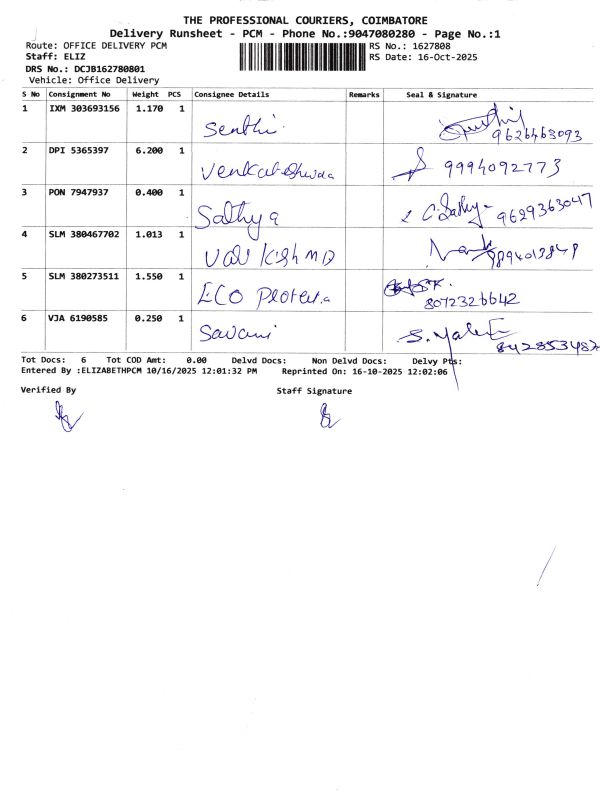 THE PROFESSIONAL COURIERS, COIMBATORE
Delivery Runsheet - PCM - Phone No.:9047080280 - Page No.:1
Route: OFFICE DELIVERY PCM
RS No.: 1627808
Staff: ELIZ
RS Date: 16-Oct-2025
DRS No.: DCJB162780801
Vehicle: Office Delivery
S No Consignment No Weight PCS Consignee Details Remarks Seal & Signature
1 IXM 303693156 1.170 1 Senthi 9626463093
2 DPI 5365397 6.200 1 9994092773
3 PON 7947937 0.400 1 Sathya C. Sathy 9629363047
4 SLM 380467702 1.013 1
5 SLM 380273511 1.550 1 ECO 8072326642
6 VJA 6190585 0.250 1 Savani S. 842853482
Tot Docs: 6 Tot COD Amt: 0.00 Delvd Docs: Non Delvd Docs: Delvy Pts:
Entered By :ELIZABETHPCM 10/16/2025 12:01:32 PM Reprinted On: 16-10-2025 12:02:06
Verified By Staff Signature